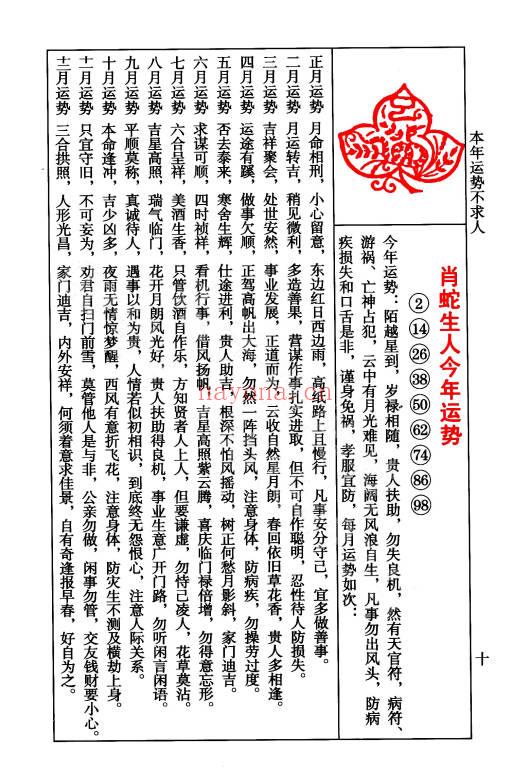 本年运势不求人
十
肖蛇生人今年运势
②⑭㉖㊳㊿62 74 86 98
今年运势：陌越星到，岁禄相随，贵人扶助，勿失良机，然有天官符，病符、
游祸、亡神占犯，云中有月光难见，海阔无风浪自生，凡事勿出风头，防病
疾损失和口舌是非，谨身免祸，孝服宜防，每月运势如次：
正月运势 月命相刑，小心留意，东边红日西边雨，高低路上且慢行，凡事安分守己，宜多做善事。
二月运势 月运转吉，稍见微利，多造善果，营谋作事扎实进取，但不可自作聪明，忍性待人防损失。
三月运势 吉祥聚会，处世安然，事业发展，正道而为，云收自然星月朗，春回依旧草花香，贵人多相逢。
四月运势 运途有蹊，做事欠顺，正驾高帆出大海，勿然一阵挡头风，注意身体，防病疾，勿操劳过度。
五月运势 否去泰来，寒舍生辉，仕途进利，贵人助吉，根深不怕风摇动，树正何愁月影斜，家门迪吉。
六月运势 求谋可顺，四时祯祥，看机行事，借风扬帆，吉星高照紫云腾，喜庆临门禄倍增，勿得意忘形。
七月运势 六合呈祥，美酒生香，只管饮酒自作乐，方知贤者人上人，但要谦虚，勿恃己凌人，花草莫沾。
八月运势 吉星高照，瑞气临门，花开月朗风光好，贵人扶助得良机，事业生意广开门路，勿听闲言闲语。
九月运势 平顺莫称，真诚待人，遇事以和为贵，人情若似初相识，到底终无怨恨心，注意人际关系。
十月运势 本命逢冲，吉少凶多，夜雨无情惊梦醒，西风有意折飞花，注意身体，防灾生不测及横劫上身。
十一月运势 只宜守旧，不可妄为，劝君自扫门前雪，莫管他人是与非，公亲勿做，闲事勿管，交友钱财要小心。
十二月运势 三合拱照，人形光昌，家门迪吉，内外安祥，何须着意求佳景，自有奇逢报早春，好自为之。